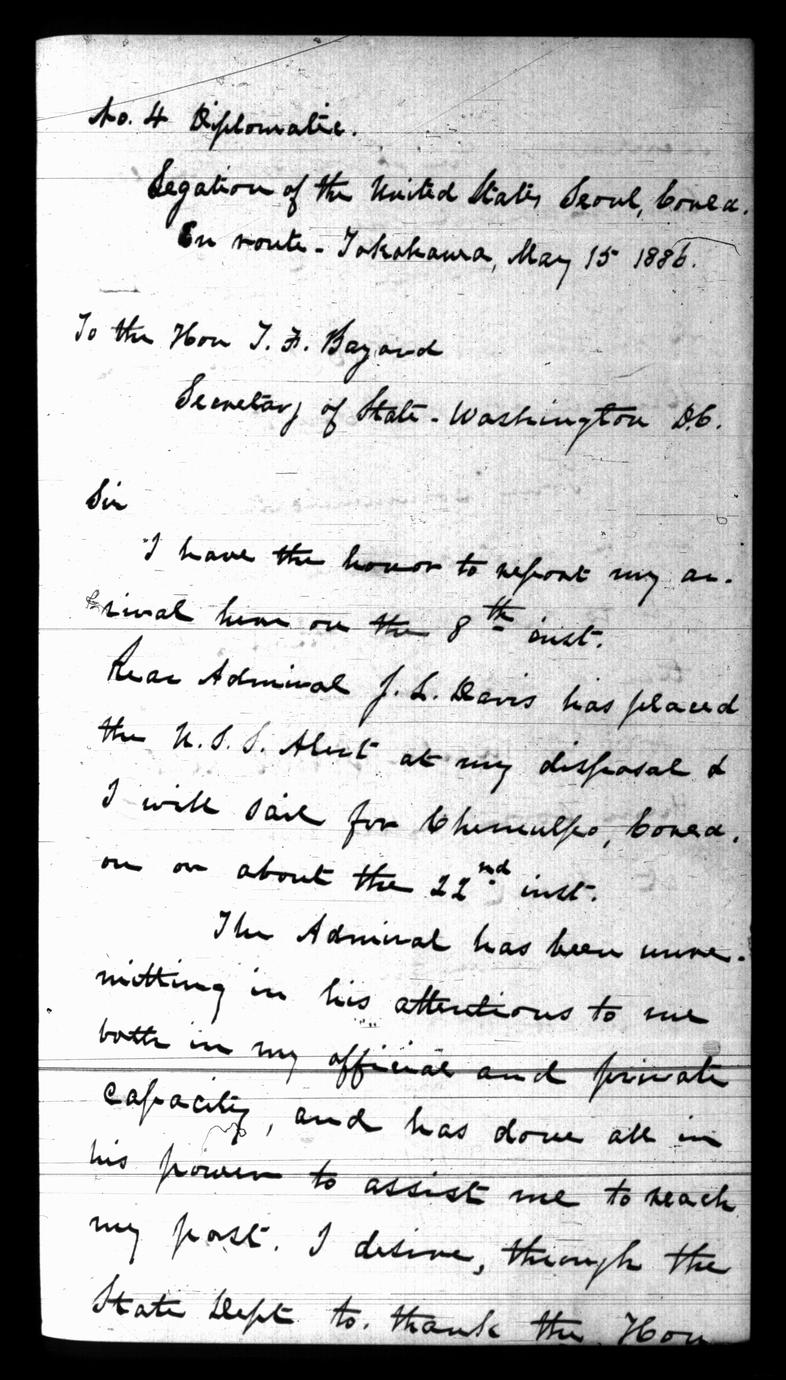 No. 4 Diplomatic.
Legation of the United States, Seoul, Corea.
En route - Yokohama, May 15 1886.
To the Hon T. F. Bayard
Secretary of State - Washington D.C.
Sir
I have the honor to report my ar-
rival here on the 8th inst.
Rear Admiral J. L. Davis has placed
the U.S.S. Alert at my disposal &
I will sail for Chemulpo, Corea,
on or about the 22nd inst.
The Admiral has been unre-
mitting in his attentions to me
both in my official and private
capacity, and has done all in
his power to assist me to reach
my post. I desire, through the
State Dept to thank the Hon